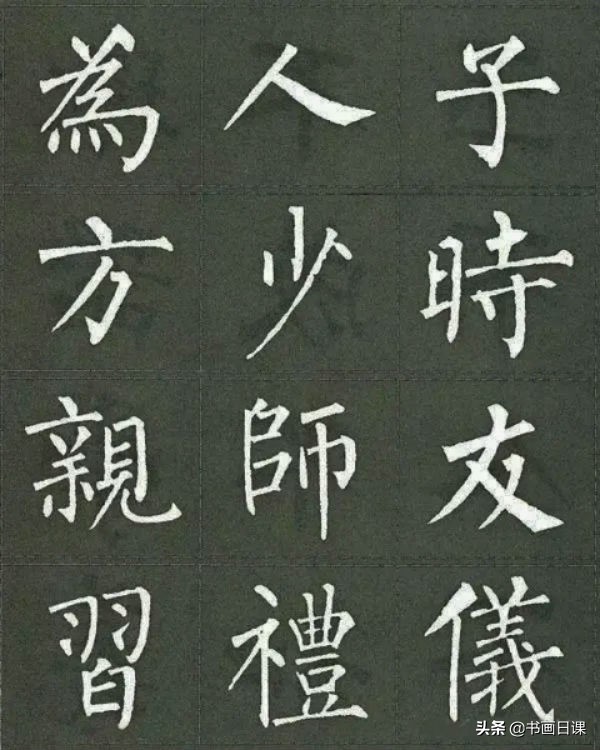 為人子
方少時
親師友
習禮儀
头条 @书画日课